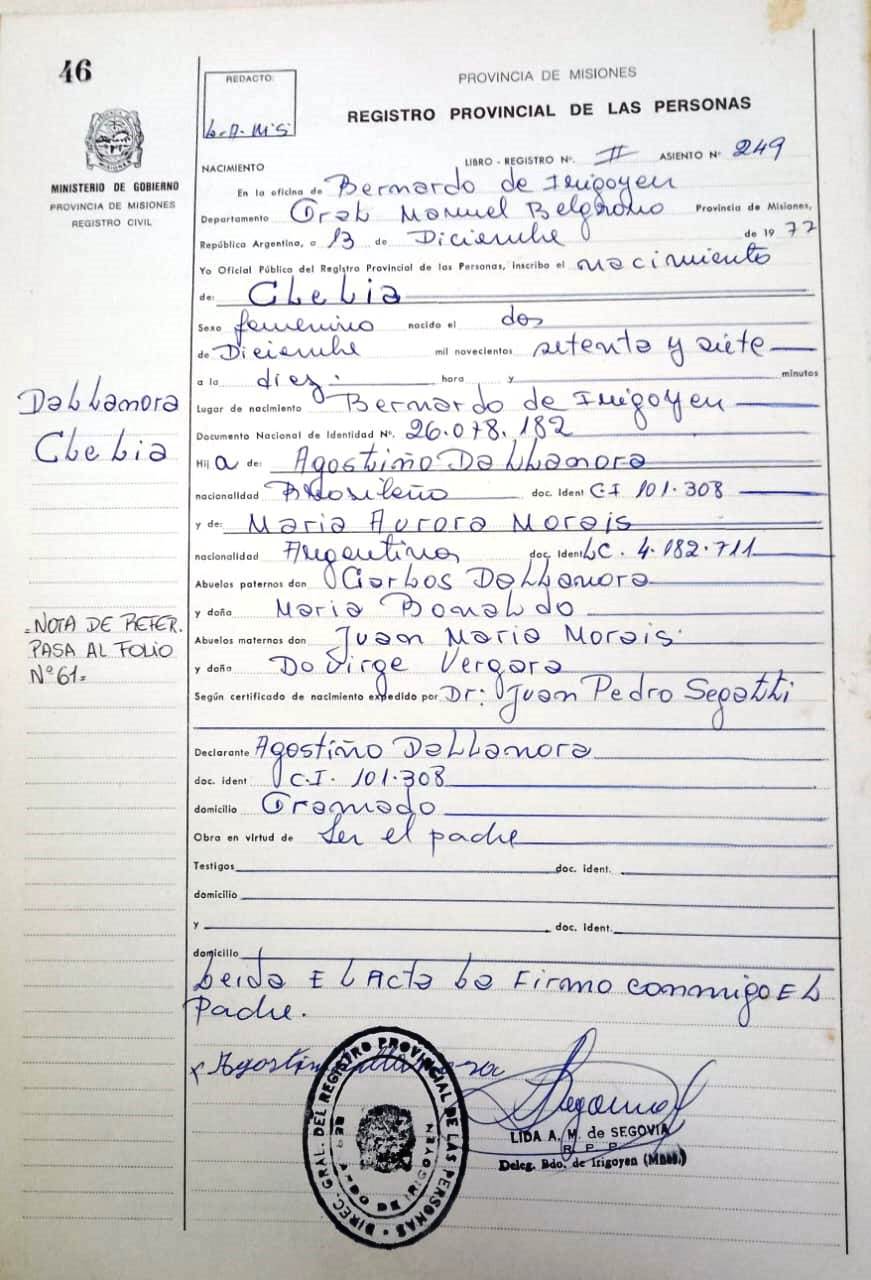 46
REDACTO:
L.A. Mis
PROVINCIA DE MISIONES
REGISTRO PROVINCIAL DE LAS PERSONAS
MINISTERIO DE GOBIERNO
PROVINCIA DE MISIONES
REGISTRO CIVIL
NACIMIENTO
LIBRO - REGISTRO Nº. II ASIENTO Nº 249
En la oficina de Bernardo de Irigoyen
Departamento Gral Manuel Belgrano Provincia de Misiones,
República Argentina, a 13 de Diciembre de 1977
Yo Oficial Público del Registro Provincial de las Personas, inscribo el nacimiento
de: Clelia
Sexo femenino nacido el dos
de Diciembre mil novecientos setenta y siete
a la diez. hora y minutos
Lugar de nacimiento Bernardo de Irigoyen
Documento Nacional de Identidad Nº. 26.078.182
Dallanora
Clelia
Hij a de: Agostiño Dallanora
nacionalidad Brasileño doc. Ident C.I 101.308
y de: Maria Aurora Morais
nacionalidad Argentina doc. Ident LC. 4.182.711
Abuelos paternos don Carlos Dallanora
y doña Maria Bonaldo
Abuelos maternos don Juan Maria Morais
y doña Do Virge Vergara
=NOTA DE REFER.
PASA AL FOLIO
Nº61=
Según certificado de nacimiento expedido por Dr: Juan Pedro Segatti
Declarante Agostiño Dallanora
doc. ident C.I. 101.308
domicilio Gramado
Obra en virtud de Ser el padre
Testigos doc. ident.
domicilio
y doc. ident.
domicilio
Leida El Acta la Firmo conmigo El
Padre.
DIREC. GRAL. DEL REGISTRO PROVINCIAL DE LAS PERSONAS
BERNARDO DE IRIGOYEN
LIDA A. M. de SEGOVIA
R P P
Deleg. Bdo. de Irigoyen (Mnes.)